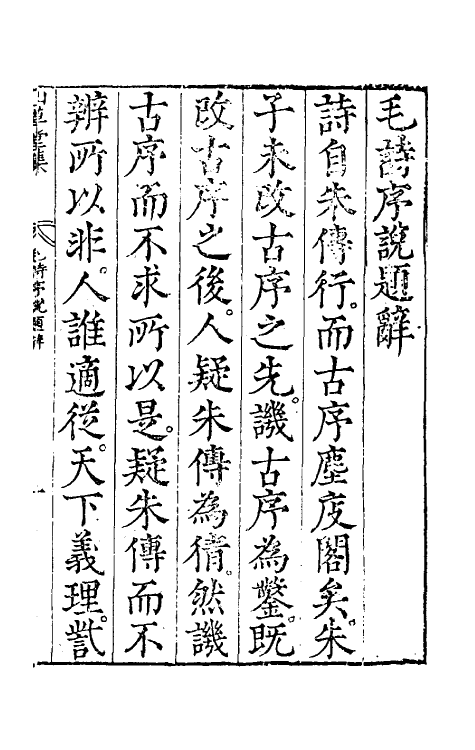 毛詩序說題辭
詩自朱傳行。而古序塵庋閣矣。朱
子未改古序之先。譏古序為鑿。既
改古序之後。人疑朱傳為猜。然譏
古序而不求所以是。疑朱傳而不
辨所以非。人誰適從。天下義理。
山草堂集 毛詩序說題辭 一